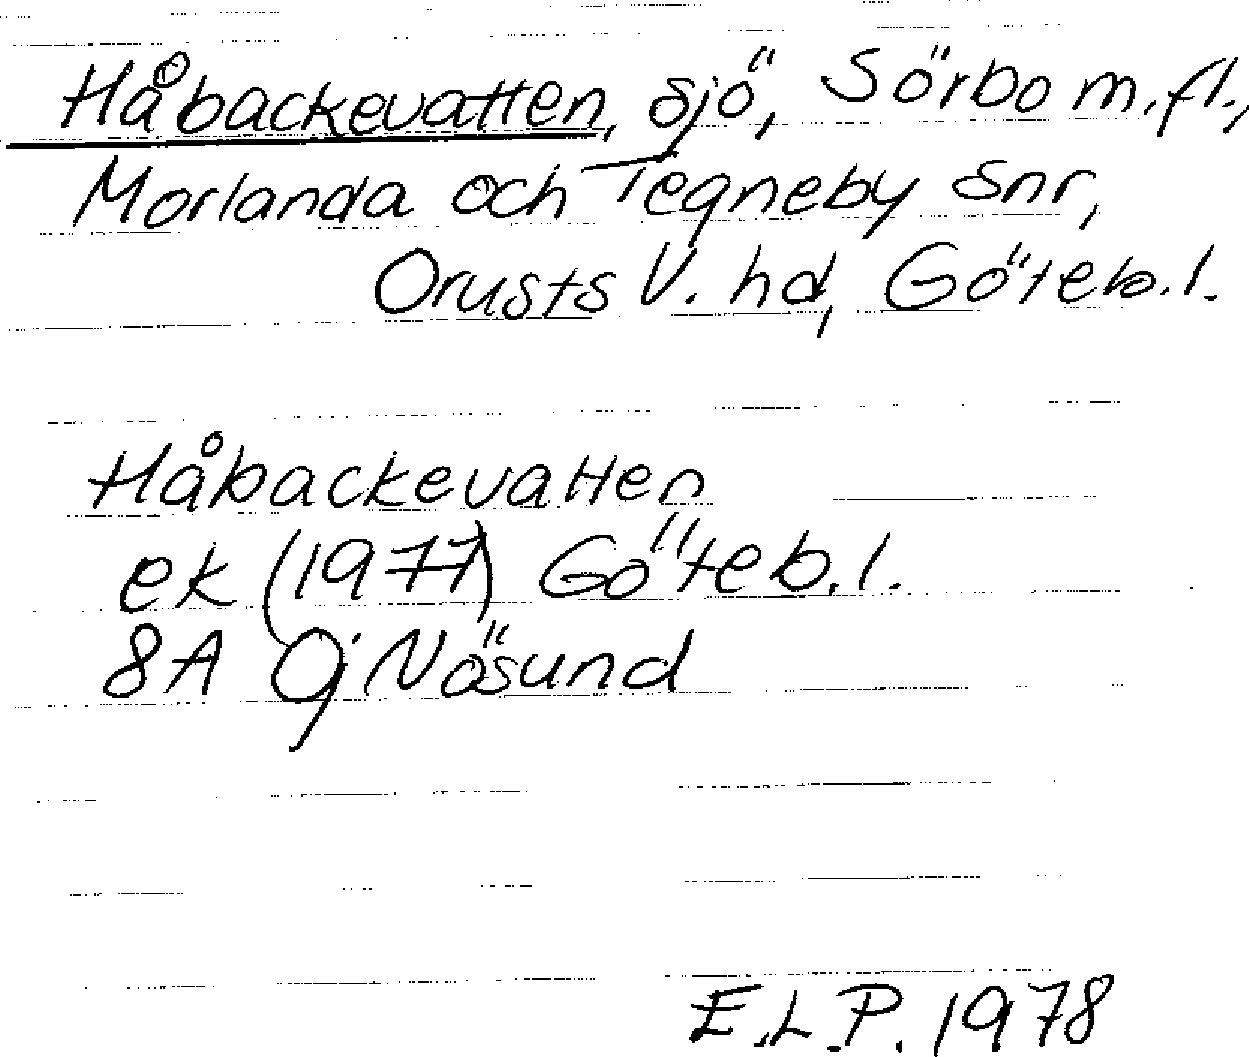 Håbackevatten, sjö, Sörbo m.fl.,
Morlanda och Tegneby snr,
Orusts V. hd, Göteb.l.
Håbackevatten
ek (1977) Göteb.l.
8A 9j Nösund
E.L.P. 1978